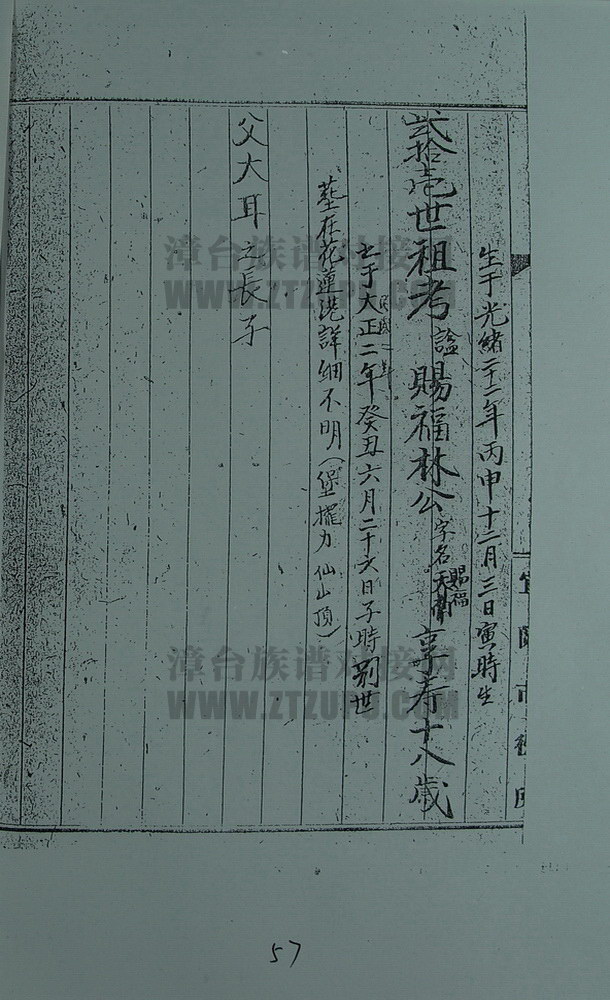 生于光緒二十二年丙申十二月三日寅時生
貳拾壱世祖考諡賜福林公字名賜福享寿十八歳
大正二年癸丑六月二十六日子時別世
墓在花蓮港詳細不明(堡擺力仙山頂)
父大耳之長子
漳台族谱对接网
WWW.ZTZUPU.COM
漳台族谱对接网
WWW.ZTZUPU.COM
57